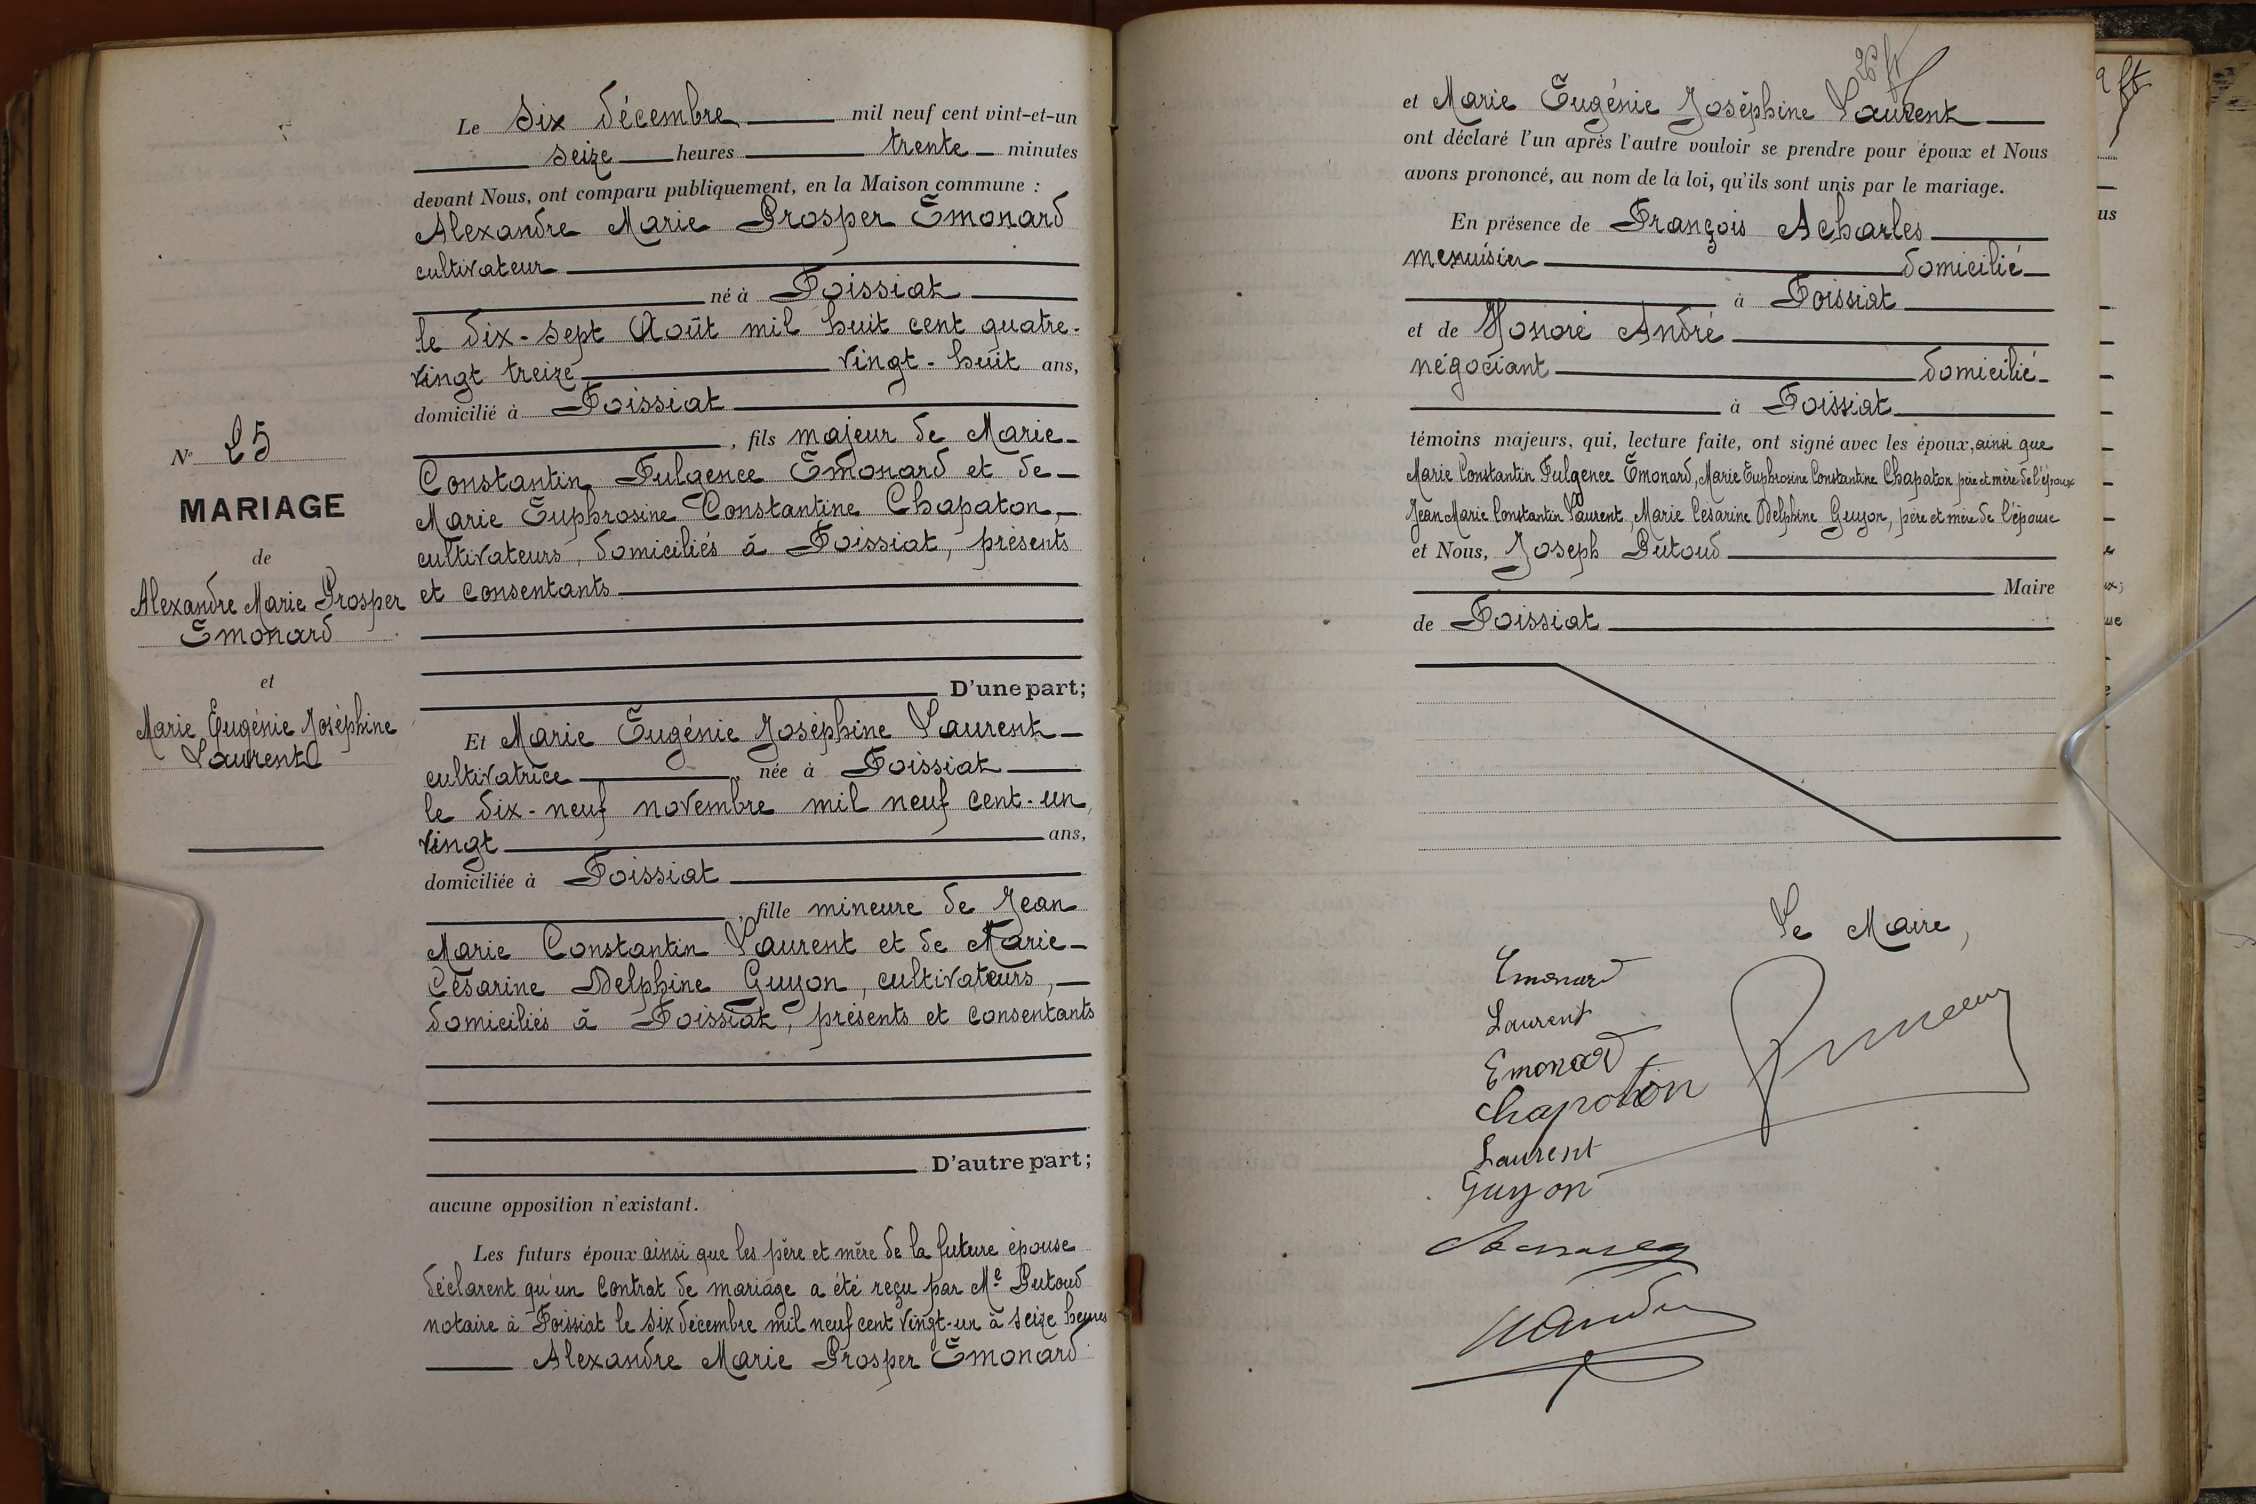 N° 25
MARIAGE
de
Alexandre Marie Prosper
Emonard
et
Marie Eugénie Joséphine
Laurent
Le six décembre mil neuf cent vint-et-un
seize heures trente minutes
devant Nous, ont comparu publiquement, en la Maison commune :
Alexandre Marie Prosper Emonard
cultivateur
né à Foissiat
le dix-sept Août mil huit cent quatre-
vingt treize vingt-huit ans,
domicilié à Foissiat
, fils majeur de Marie
Constantin Fulgence Emonard et de
Marie Euphrosine Constantine Chapaton,
cultivateurs, domiciliés à Foissiat, présents
et consentants
D'une part;
Et Marie Eugénie Joséphine Laurent
cultivatrice, née à Foissiat
le dix-neuf novembre mil neuf cent-un,
vingt ans,
domiciliée à Foissiat
, fille mineure de Jean
Marie Constantin Laurent et de Marie
Césarine Delphine Guyon, cultivateurs,
domiciliés à Foissiat, présents et consentants
D'autre part;
aucune opposition n'existant.
Les futurs époux ainsi que les père et mère de la future épouse
déclarent qu'un contrat de mariage a été reçu par Me Putoud
notaire à Foissiat le six décembre mil neuf cent vingt-un à seize heures
Alexandre Marie Prosper Emonard
et Marie Eugénie Joséphine Laurent
ont déclaré l'un après l'autre vouloir se prendre pour époux et Nous
avons prononcé, au nom de la loi, qu'ils sont unis par le mariage.
En présence de François Acharles
menuisier domicilié
à Foissiat
et de Honoré André
négociant domicilié
à Foissiat
témoins majeurs, qui, lecture faite, ont signé avec les époux, ainsi que
Marie Constantin Fulgence Emonard, Marie Euphrosine Constantine Chapaton père et mère de l'époux
Jean Marie Constantin Laurent, Marie Césarine Delphine Guyon, père et mère de l'épouse
et Nous, Joseph Putoud
Maire
de Foissiat
Le Maire,
Emonard
Laurent
Emonard
Chapoton
Laurent
Guyon
us
ue